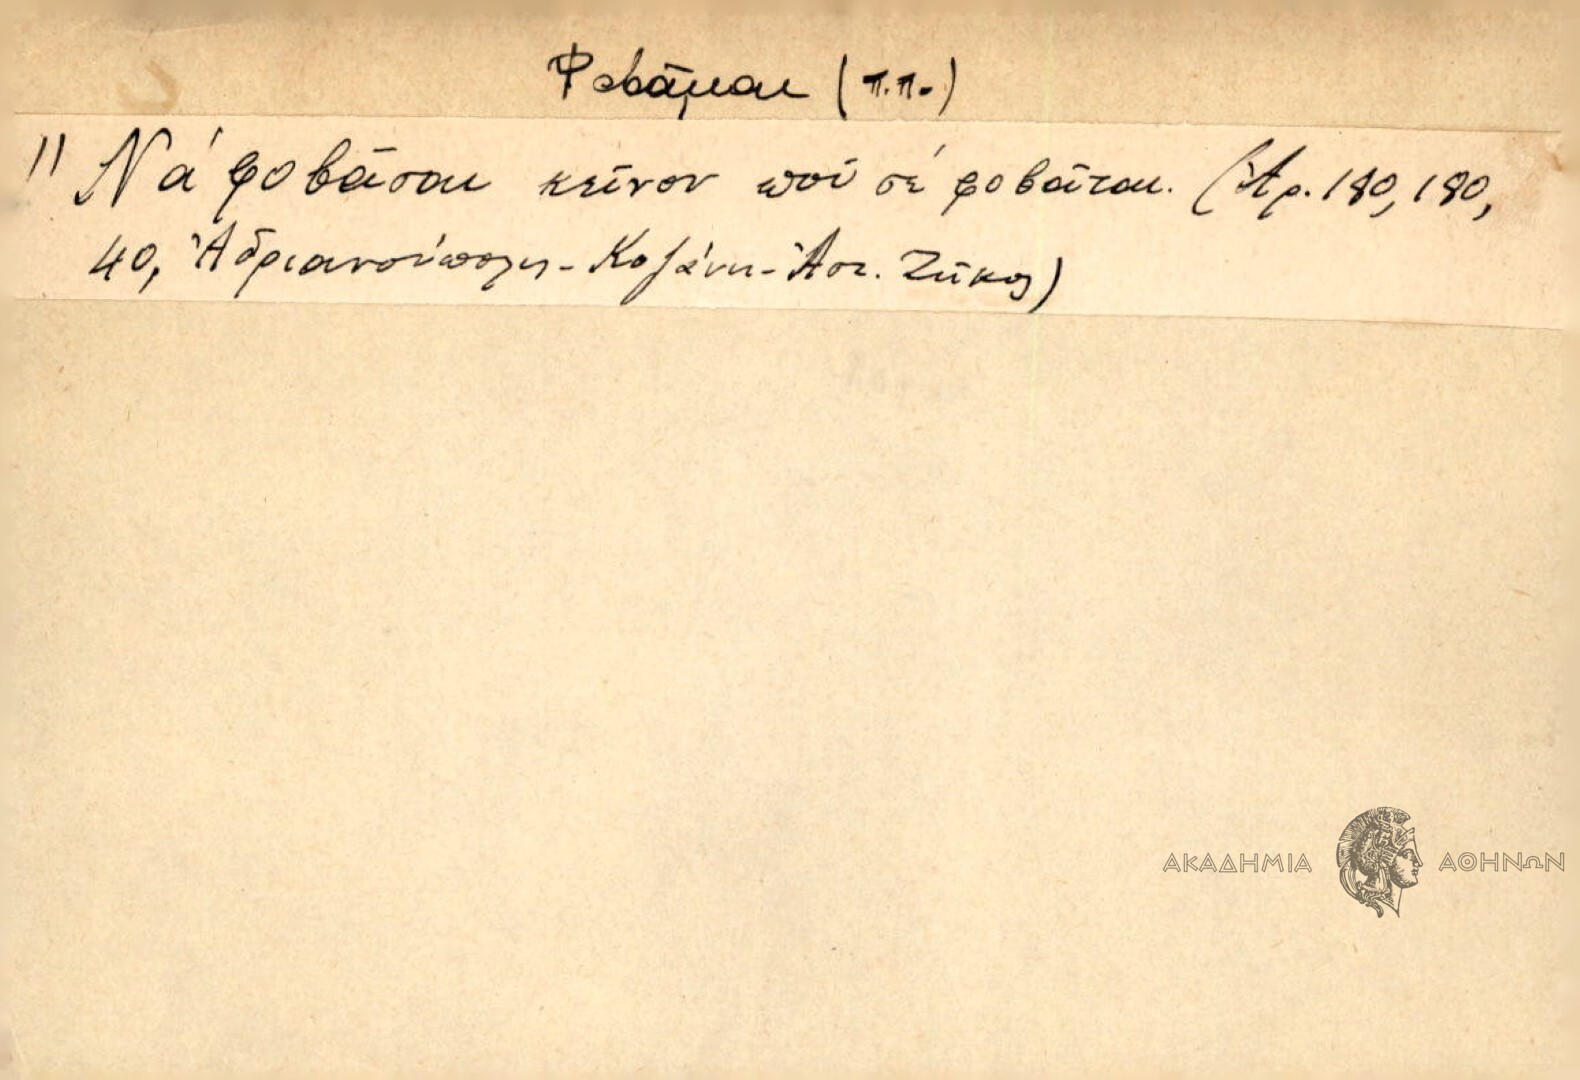 Φοβᾶμαι (π.π.)
" Νά φοβᾶσαι κεῖνον πού σέ φοβᾶται. (Ἀρ. 180, 180,
40, Ἀδριανούπολη - Κοζάνη - Ἀστ. Ζῆκος)
ΑΚΑΔΗΜΙΑ ΑΘΗΝΩΝ